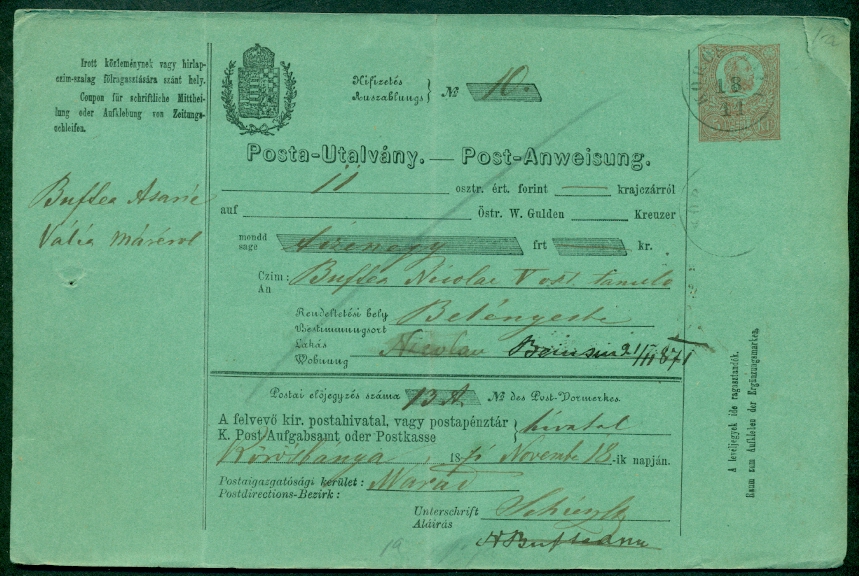 Irott közleménynek vagy hirlap-
czim-szalag fölragasztására szánt hely.
Coupon für schriftliche Mitthei-
lung oder Aufklebung von Zeitungs-
schleifen.
Buftea Asarie
Kifizetés
Auszahlungs } № 10.
18
11
Posta-Utalvány. — Post-Anweisung.
11 osztr. ért. forint — krajczárról
auf Östr. W. Gulden Kreuzer
mondd
sage tizenegy frt kr.
Czim:
An Buftea Nicolae V
Rendeltetési hely
Bestimmungsort Belényesbe
Lakás
Wohnung Nicolae Beinsiu 21/11 871
Postai előjegyzés száma 13 A. № des Post-Vormerkes.
A felvevő kir. postahivatal, vagy postapénztár
K. Post Aufgabsamt oder Postkasse } hivatal
Körösbanya, 1871 November 18-ik napján.
Postaigazgatósági kerület:
Postdirections-Bezirk:
Unterschrift
Aláirás
A levéljegyek ide ragasztandók.
Raum zum Aufkleben der Ergänzungsmarken.